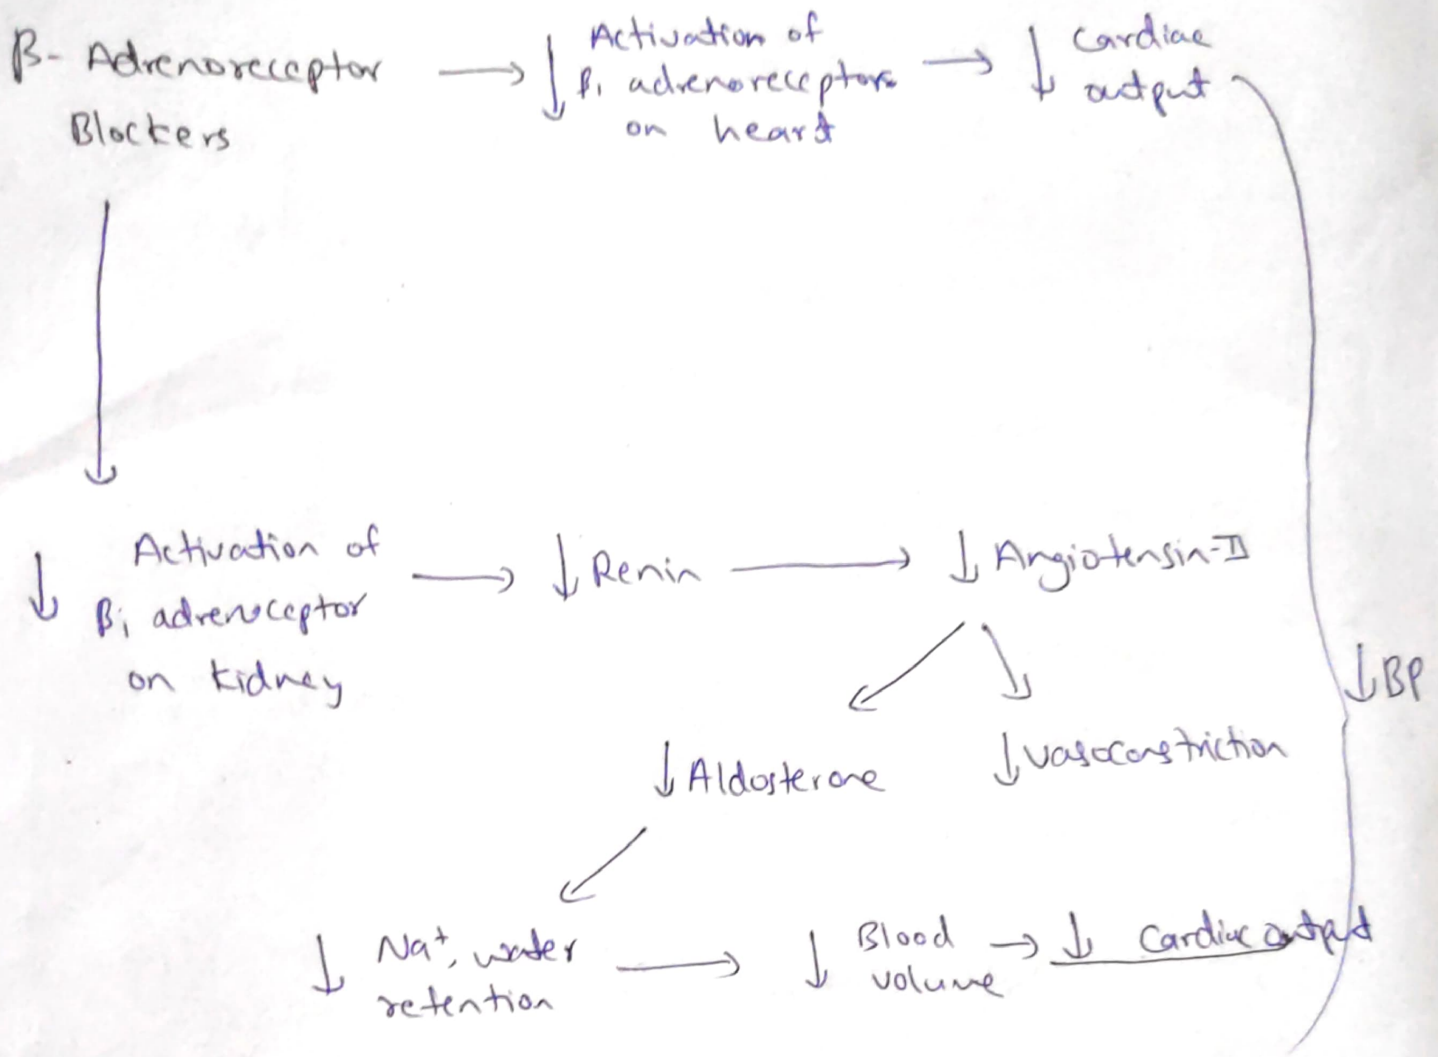 β- Adrenoreceptor
Blockers
→ ↓ Activation of
β₁ adrenoreceptors
on heart
→ ↓ Cardiac
output
↓
↓ Activation of
β₁ adrenoceptor
on kidney
→ ↓ Renin → ↓ Angiotensin-II
↓ BP
↓ Aldosterone
↓ Vasoconstriction
↓ Na⁺, water
retention
→ ↓ Blood
volume
→ ↓ Cardiac output